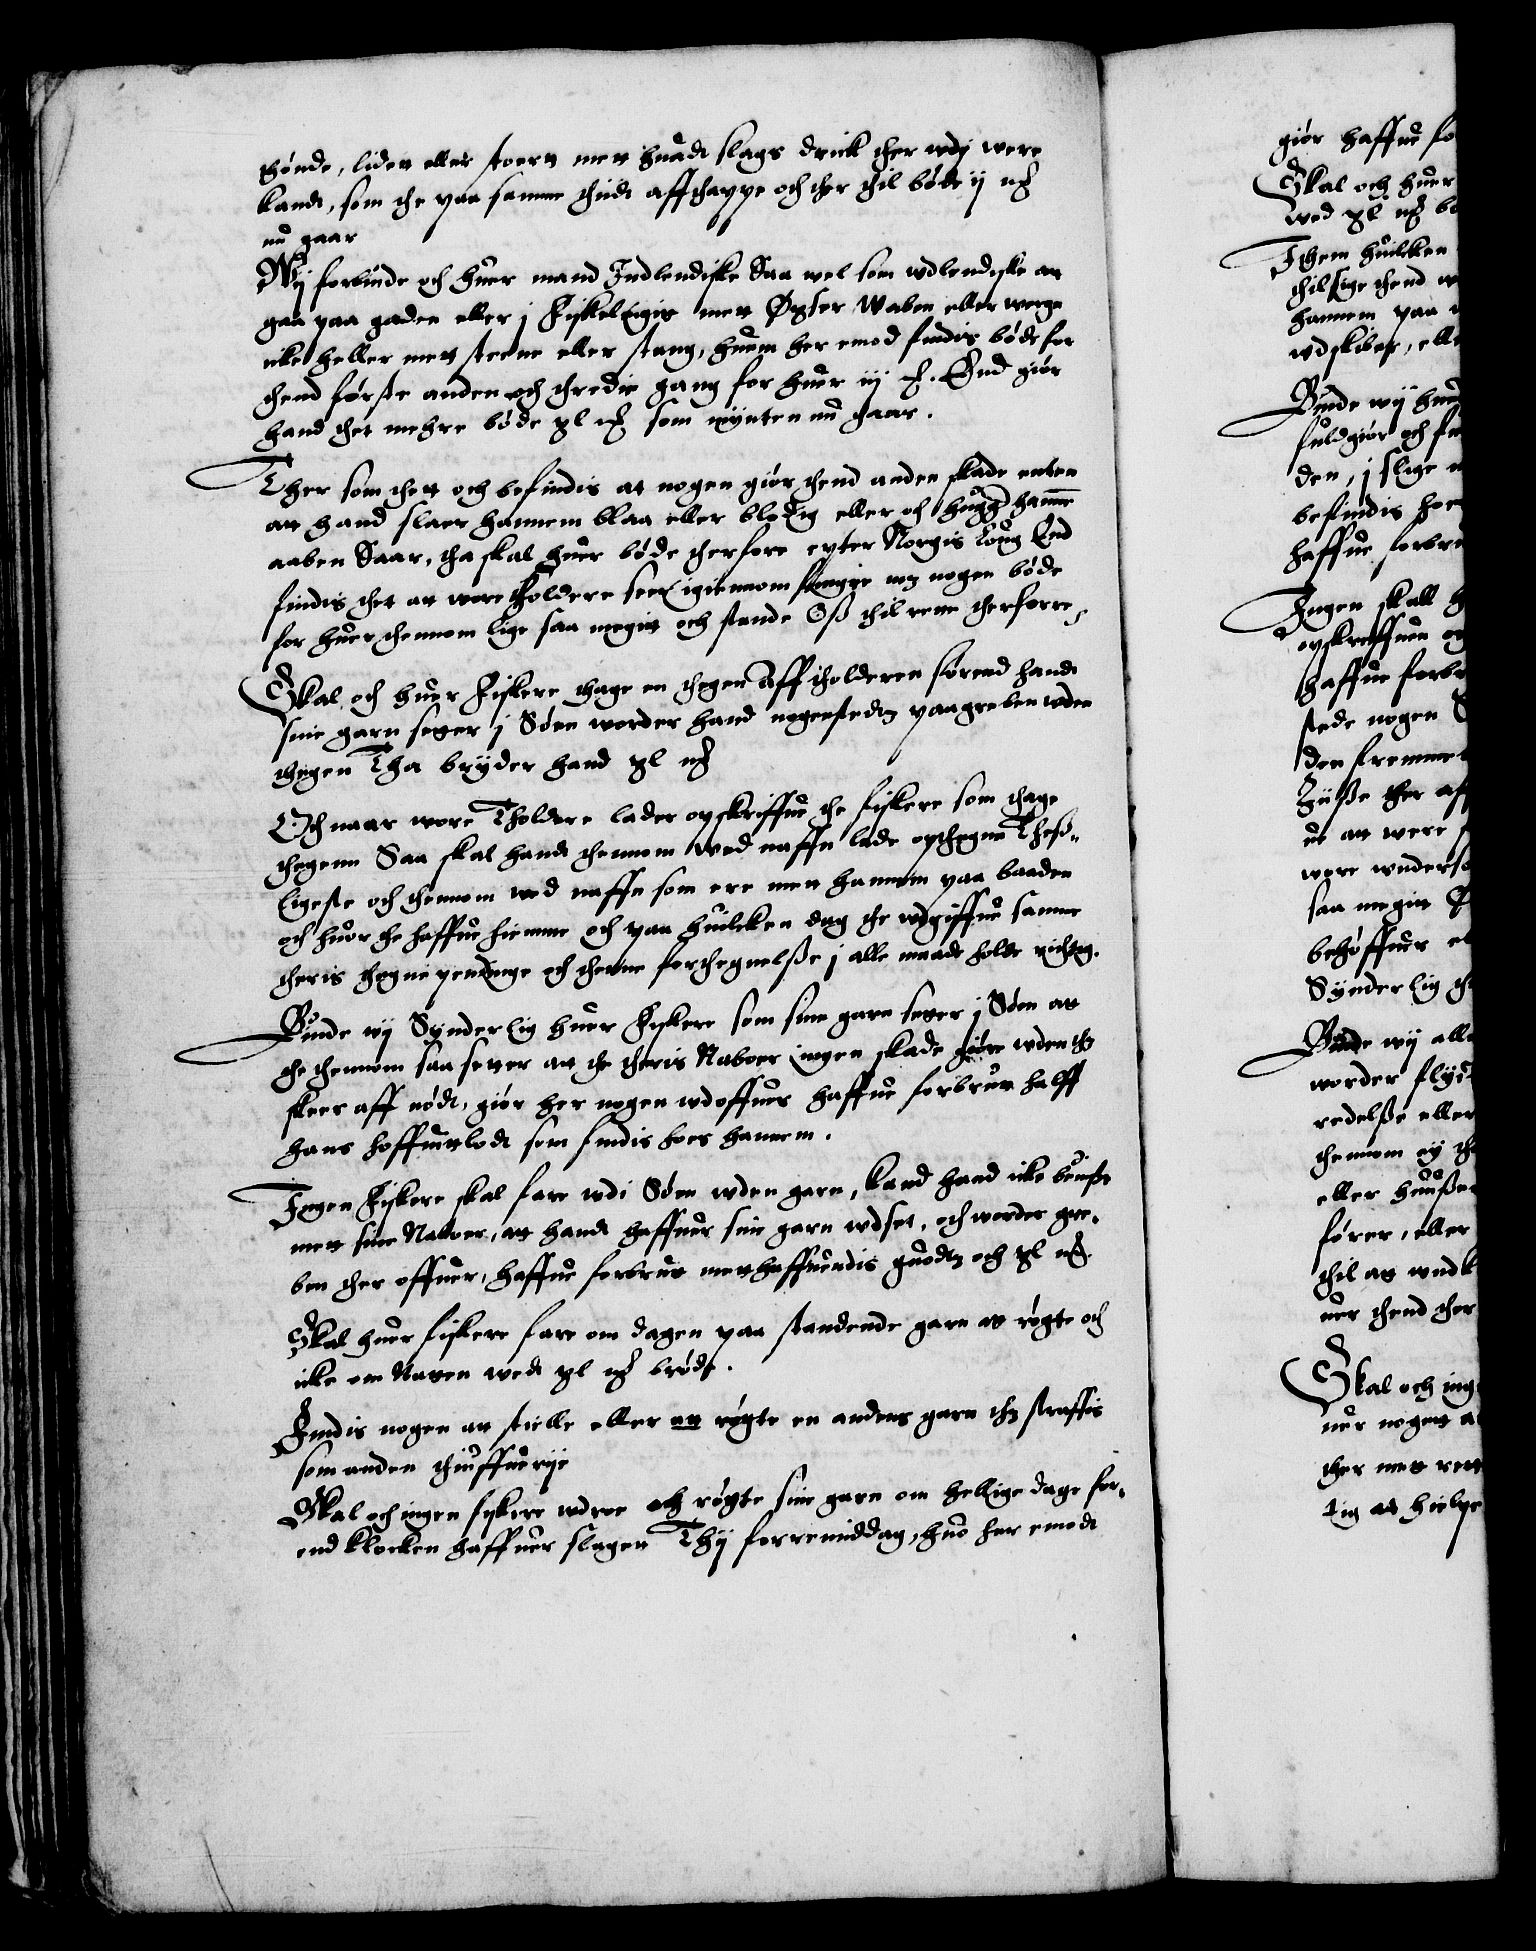 thønde, liden eller stoere met huadt slags drick ther wdj were
kandt, som the paa samme thidt affthappe och ther thil bøde ij mʒ
nu gaar
Wij forbiude och huer mand Indlendiske Saa wel som wdlendiske at
gaa paa gaden eller j Fiskeleyit met Øxser Waben eller werge
icke heller met steene eller stang, huem her emod findis bøde for
thend første anden och thredie gang for huer iij β. End giør
hand thet mehre bøde xl mʒ som mynten nu gaar.
Ther som thet och befindis at nogen giør thend anden skade enten
at hand slaer hannem blaa eller blodig eller och huggʒ hanne
aaben Saar, tha skal huer bøde therfore epter Norgis Loug End
findis thet at wore tholdere seer igiennom met nogen bøde
for huer thennom lige saa megit och stande Oß thil rette therforre,
Skal och huer Fiskere thage en thegen Aff tholderen førend handt
sine garn setter j Søen worder hand nogenstedtz paagreben wden
thegen Tha bryder hand xl mʒ
Och naar wore Tholdere lader opskriffue the fiskere som thage
thegenn Saa skal handt thennom wed naffn lade opthegne Theß-
ligeste och thennom wed naffn som ere met hannem paa baaden
och huor the haffue hiemme och paa huilcken dag the wdgiffue samme
theris thegnependinge och thenne forthegnelße j alle maade holde richtig.
Biude wij Synderlig huer Fiskere som sine garn setter j Søen at
the thennom saa setter at the theris Naboer ingen skade giøre wden thʒ
skeer aff nødt, giør her nogen wdoffuer haffue forbrut halff
hans hoffuitlodt som findis hoes hannem.
Ingen Fiskere skal fare wdi Søen wden garn, kand hand icke beuiße
met sine Naboer, at handt haffuer sine garn wdset, och worder gre-
ben ther offuer, haffue forbrut methaffuendis guodtz och xl mʒ.
Skal huer fiskere fare om dagen paa standende garn at røgte och
icke om Natten wedt xl mʒ brøde.
Findis nogen at stielle eller at røgte en andens garn thʒ straffis
som anden thiuffuerije
Skal och ingen fiskere wdroe och røgte sine garn om hellige dage for-
end klocken haffuer slagen Thij forremiddag, huo her emodt
giør haffue fo
Skal och huer
wed xl mʒ b
Ithem huilcken
thilsige thend
hannem paa
wdskiber, elle
Biude wij hue
fuldgiør och
den, j slige
befindis hoe
haffue forbr
Ingen skall h
opskreffuen
haffue forbr
stede nogen
den fremmet
ther aff
ue at were
wore wnders
saa megit
behøffuer el
Synderlig th
Biude wij alle
worder flyd
redelße eller
thennom ey th
eller huußer
fører, eller
thil at wndk
uer thend ther
Skal och inge
uer nogen a
ther met rett
tig at hielpe